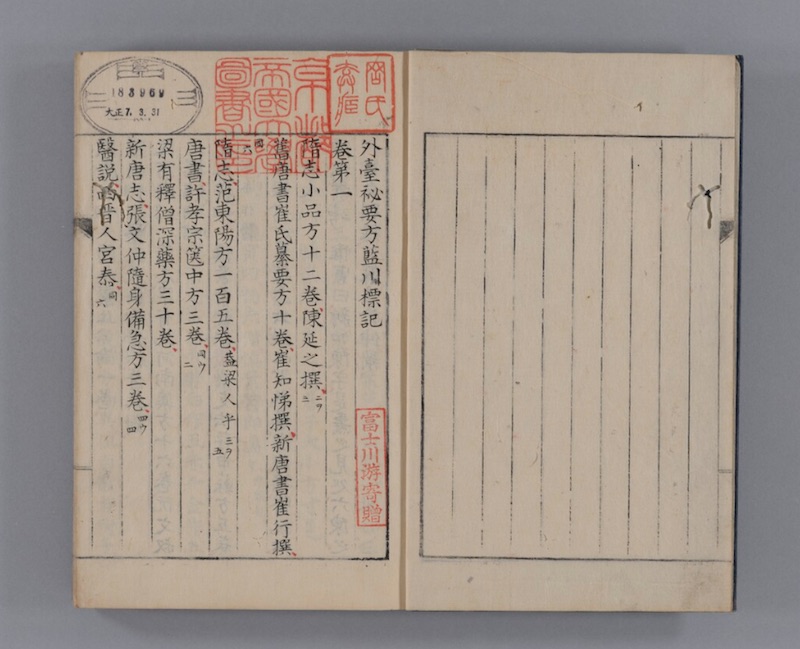 外臺祕要方藍川標記
卷第一
隋志小品方十二卷陳延之撰二ウ三
舊唐書崔氏纂要方十卷崔知悌撰新唐書崔行撰
同六
隋志范東陽方一百五卷葢梁人乎三ウ五
唐書許孝宗篋中方三卷同ウ二
梁有釋僧深藥方三十卷
新唐志張文仲隨身備急方三卷四ウ四
醫說西晉人宮泰同六
京都
帝國大學
圖書之印
富士川游寄贈
183969
大正7.3.31